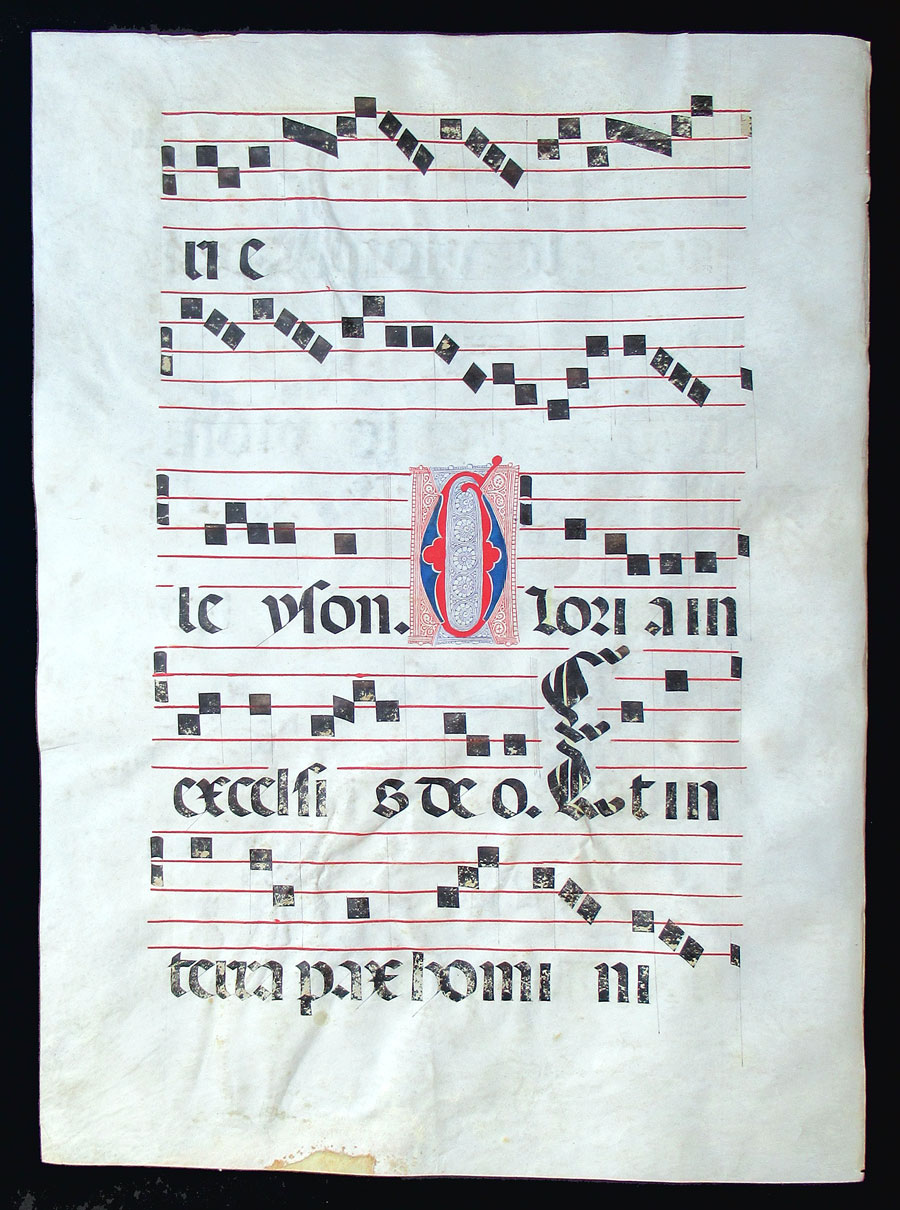 ne
le yson. Glori a in
excelsi s deo. Et in
terra pax homi ni